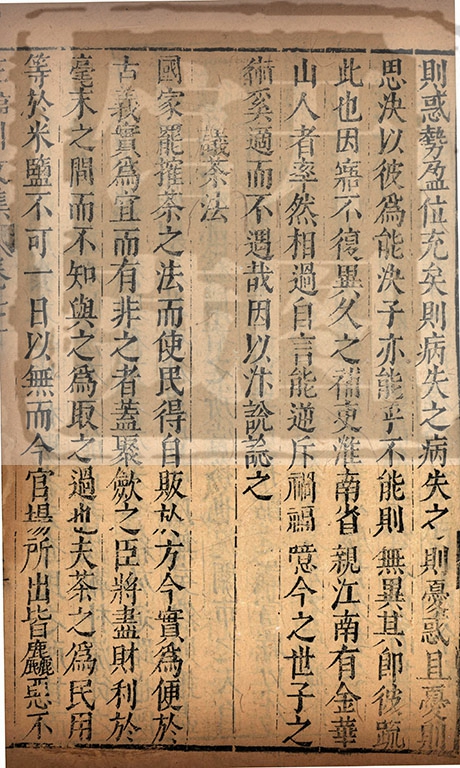 則惑勢盈位充矣則病失之病失之則憂惑且憂則
思決以彼為能決子亦能乎不能則無異其即彼䟽
此也因寤不復異久之補吏淮南省親江南有金華
山人者率然相過自言能逆斥禍福噫今之世子之
術奚適而不遇哉因以汴說諗之
議茶法
國家罷搉茶之法而使民得自販於方今實為便於
古義實為宜而有非之者蓋聚歛之臣將盡財利於
毫末之間而不知與之為取之過也夫茶之為民用
等於米鹽不可一日以無而今官場所出皆麤惡不